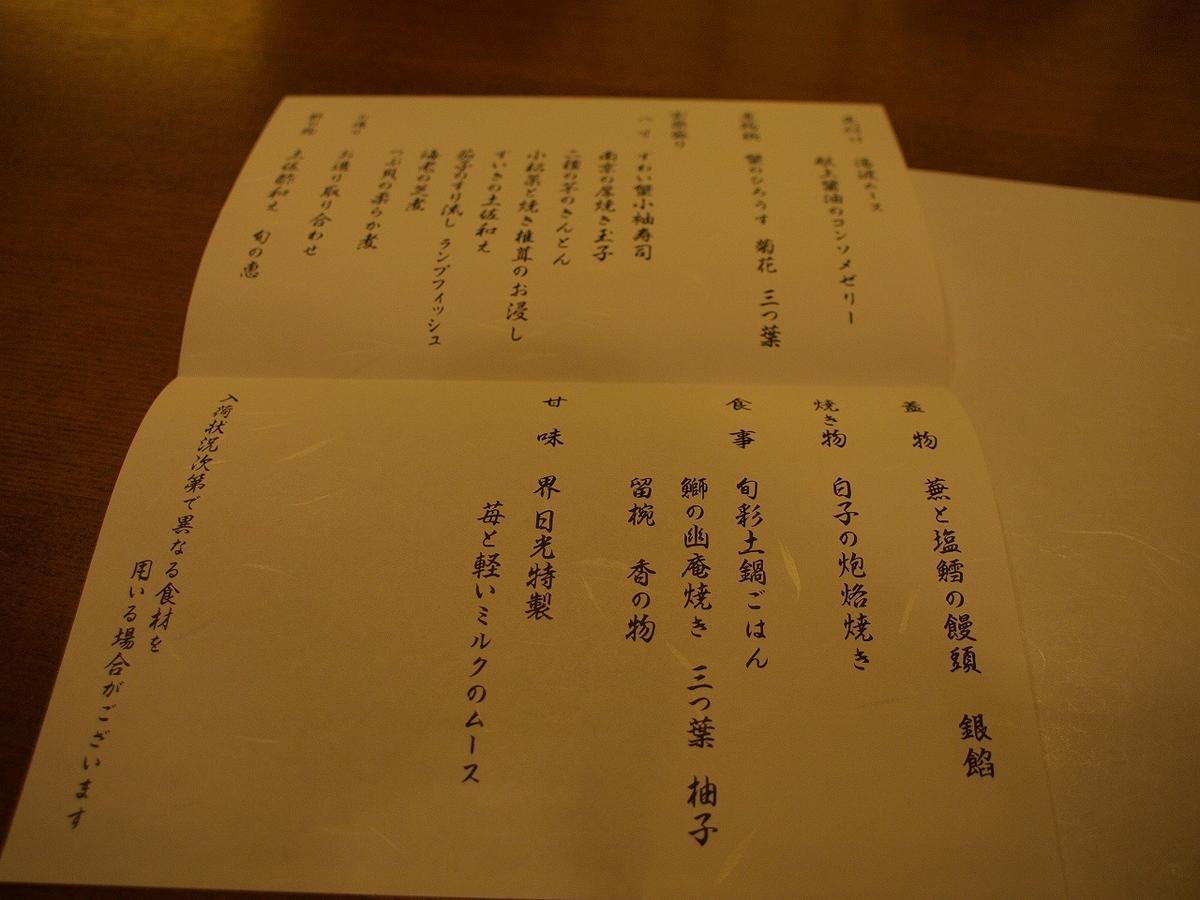 先付け 湯波ムース
献上醤油のコンソメゼリー
煮物椀 蟹のひろうす 菊花 三つ葉
宝楽盛り
八寸 ずわい蟹小袖寿司
南京の厚焼き玉子
二種の芋のきんとん
小松菜と焼き椎茸のお浸し
ずいきの土佐和え
茄子のすり流し ランプフィッシュ
海老の芝煮
つぶ貝の柔らか煮
お造り お造り取り合わせ
酢の物 土佐酢和え 旬の恵
蓋物 蕪と塩鱈の饅頭 銀餡
焼き物 白子の炮烙焼き
食事 旬彩土鍋ごはん
鰤の幽庵焼き 三つ葉 柚子
留椀 香の物
甘味 界 日光特製
苺と軽いミルクのムース
入荷状況次第で異なる食材を
用いる場合がございます